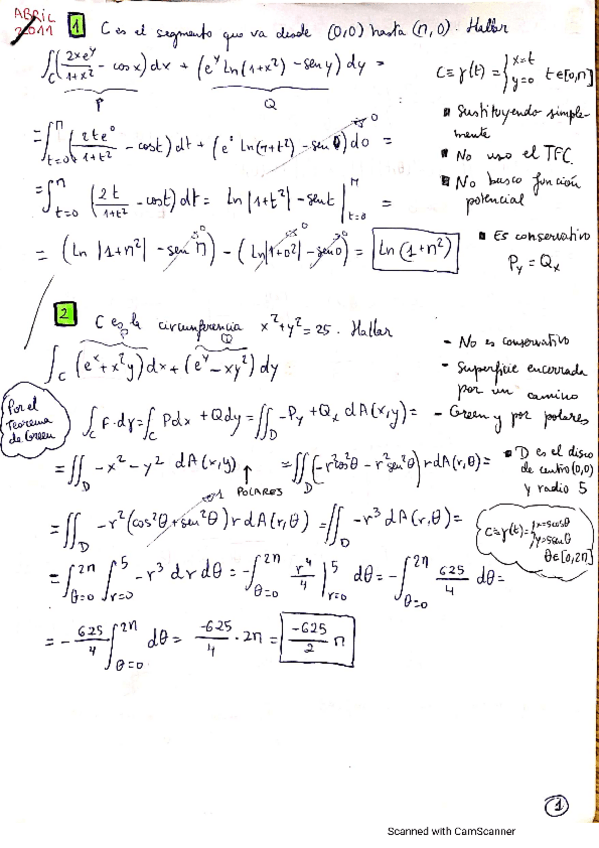 ABRIL
2011
1 C es el segmento que va desde (0,0) hasta (π,0). Hallar
∬_C (2xe^y/(1+x²) - cos x) dx + (e^y Ln(1+x²) - sen y) dy =
P Q
C ≡ γ(t) = { x=t y=0 t∈[0,π]
= ∫_{t=0}^{π} (2te⁰/(1+t²) - cos t) dt + (e⁰ Ln(1+t²) - sen 0) d0 =
= ∫_{t=0}^{π} (2t/(1+t²) - cos t) dt = Ln |1+t²| - sen t |_{t=0}^{π} =
= (Ln |1+π²| - sen π) - (Ln|1+0²| - sen 0) = Ln (1+π²)
Sustituyendo simple-
mente
No uso el TFC.
No busco función
potencial
Es conservativo
P_y = Q_x
2 C es la circunferencia x²+y²=25. Hallar
P Q
∫_C (e^x + x²y) dx + (e^y - xy²) dy
- No es conservativo
- Superficie encerrada
por un camino
- Green y por polares
Por el
Teorema
de Green
∫_C F·dγ = ∫_C Pdx + Qdy = ∬_D -P_y + Q_x dA(x,y) =
= ∬_D -x² - y² dA(x,y) = ∬_D (-r²cos²θ - r²sen²θ) r dA(r,θ) =
↑
POLARES
D es el disco
de centro (0,0)
y radio 5
= ∬_D -r² (cos²θ + sen²θ) r dA(r,θ) = ∬_D -r³ dA(r,θ) =
1
C ≡ γ(t) = { x=5cosθ
y=5senθ
θ∈[0,2π]
= ∫_{θ=0}^{2π} ∫_{r=0}^{5} -r³ dr dθ = -∫_{θ=0}^{2π} r⁴/4 |_{r=0}^{5} dθ = -∫_{θ=0}^{2π} 625/4 dθ =
= -625/4 ∫_{θ=0}^{2π} dθ = -625/4 · 2π = -625/2 π
1
Scanned with CamScanner